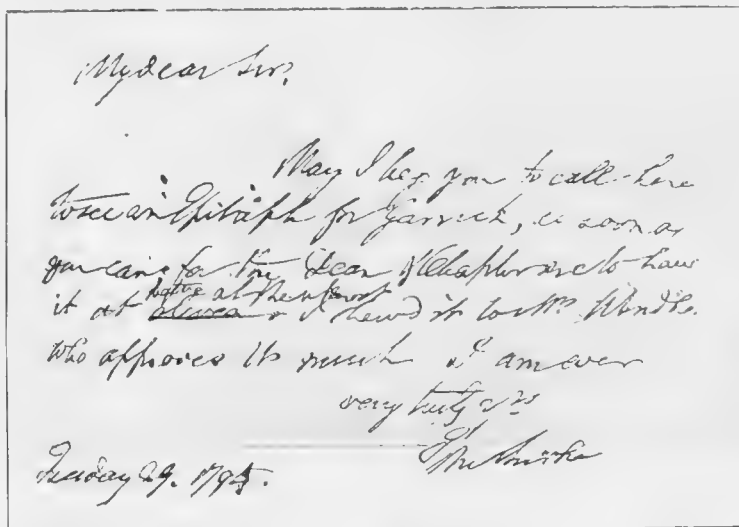 My dear Sir,
May I beg you to call here
to see an Epitaph for Garrick, as soon as
you can for the Dean & Chapter are to have
at the
it at eleven & I shew'd it to Mr. Windh.
who approves it much I am ever
very truly yrs
Tuesday 29. 1795.